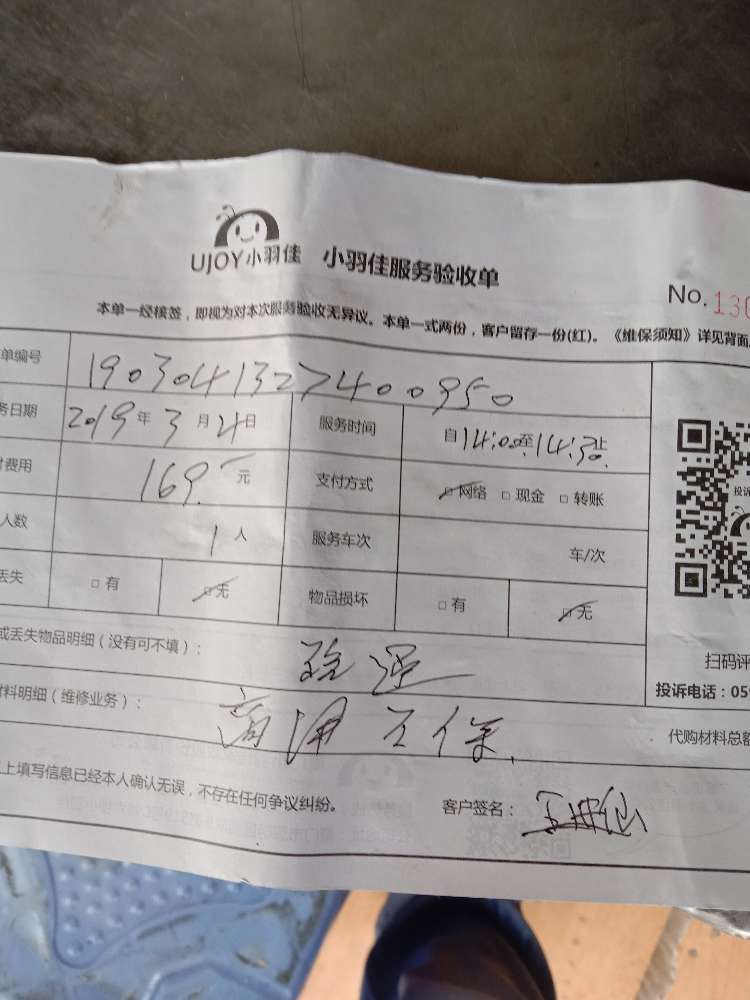 UJOY小羽佳 小羽佳服务验收单
No.130
本单一经核签，即视为对本次服务验收无异议。本单一式两份，客户留存一份(红)。《维保须知》详见背面
单编号 1903041327400950
务日期 2019年3月4日 服务时间 自14:00至14:30止
付费用 169.元 支付方式 □网络 □现金 □转账
人数 1人 服务车次 车/次
丢失 □有 □无 物品损坏 □有 □无
或丢失物品明细（没有可不填）：
材料明细（维修业务）：
扫码评
投诉电话：059
代购材料总额
上填写信息已经本人确认无误，不存在任何争议纠纷。 客户签名：